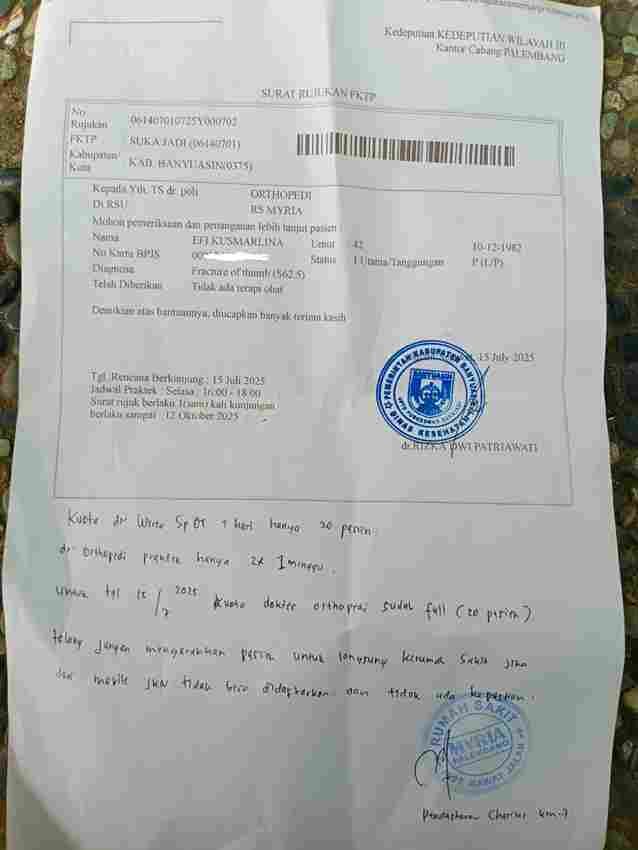 Kedeputian KEDEPUTIAN WILAYAH III
Kantor Cabang PALEMBANG
SURAT RUJUKAN FKTP
No Rujukan 061407010725Y000702
FKTP SUKA JADI (06140701)
Kabupaten Kota KAB. BANYUASIN(0375)
Kepada Yth. TS dr. poli ORTHOPEDI
Di RSU RS MYRIA
Mohon pemeriksaan dan penanganan lebih lanjut pasien :
Nama EFI KUSMARLINA Umur 42 10-12-1982
No Kartu BPJS 00 Status 1 Utama/Tanggungan P (L/P)
Diagnosa Fracture of thumb (S62.5)
Telah Diberikan Tidak ada terapi obat
Demikian atas bantuannya, diucapkan banyak terima kasih
15 July 2025
Tgl. Rencana Berkunjung : 15 Juli 2025
Jadwal Praktek : Selasa : 16:00 - 18:00
Surat rujuk berlaku 1(satu) kali kunjungan
berlaku sampai : 12 Oktober 2025
PEMERINTAH KABUPATEN BANYUASIN
DINAS KESEHATAN
dr.RIZKA DWI PATRIAWATI
Kuota dr Wira SpOT 1 hari hanya 20 pasien.
dr orthopedi praktek hanya 2x 1 minggu.
Untuk tgl 15/7 2025 kuota dokter orthopedi sudah full (20 pasien)
tolong jangan mengarahkan pasien untuk langsung kerumah sakit jika
dari mobile JKN tidak bisa didaftarkan dan tidak ada kepastian.
RUMAH SAKIT
MYRIA
PALEMBANG
RAWAT JALAN
Pendaftaran Charitas km-7